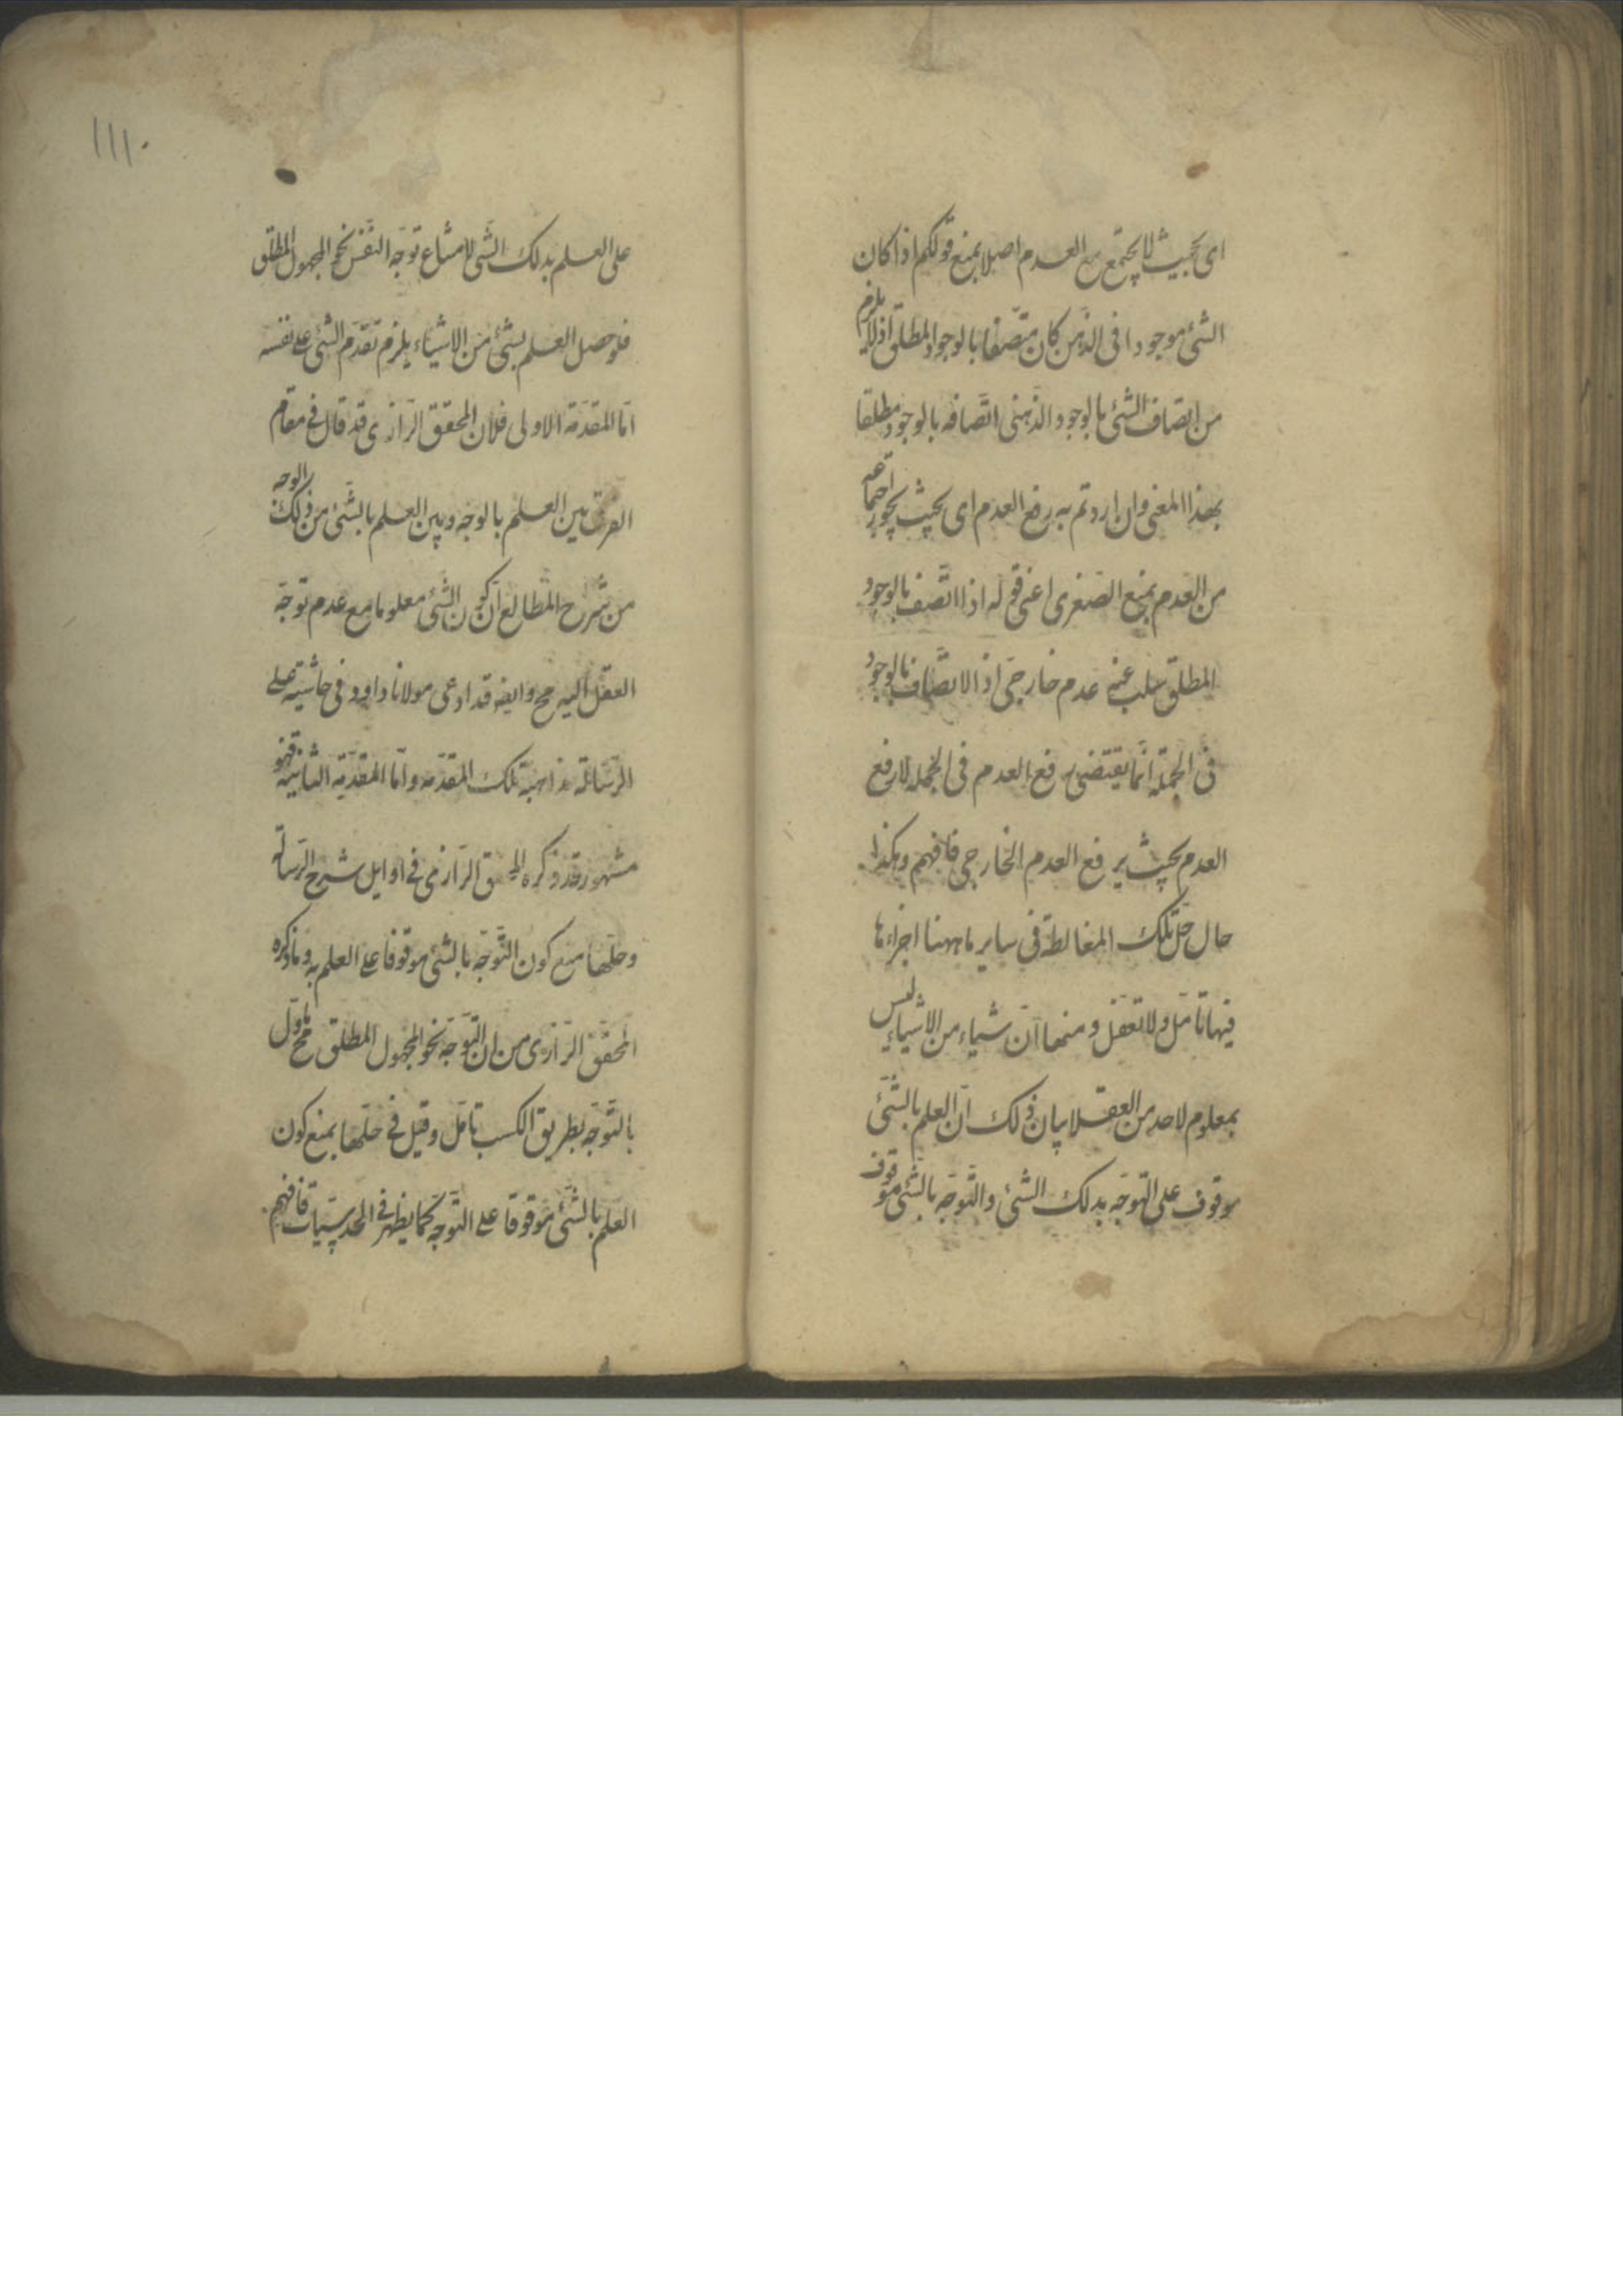 اى بحيث لا يجتمع مع العدم اصلا بمنع قولكم اذا كان
الشئ موجودا فى الذهن كان متصفا بالوجود المطلق اذ لا يلزم
من اتصاف الشئ بالوجود الذهنى اتصافه بالوجود مطلقا
بهذا المعنى وان اردتم به رفع العدم اى بحيث يجوز اجتماعه
من العدم بمنع الصغرى اعنى قوله اذا اتصف بالوجود
المطلق سلب عنه عدم خارجى اذ الاتصاف بالوجود
فى الجملة انما يقتضى رفع العدم فى الجملة لا رفع
العدم بحيث يرفع العدم الخارجى فافهم وهكذا
حال حل تلك المغالطة فى ساير ما ههنا اجزاءها
فيها تامل ولا تعقل ومنها ان شياء من الاشياء ليس
بمعلوم لاحد من العقلا بيان ذلك ان العلم بالشئ
موقوف على التوجه بذلك الشئ والتوجه بالشئ موقوف
١١١٠
على العلم بذلك الشئ لامتناع توجه النفس نحو المجهول المطلق
فلو حصل العلم بشئ من الاشياء يلزم تقدم الشئ على نفسه
اما المقدمة الاولى فلان المحقق الرازى قد قال فى مقام
الفرق بين العلم بالوجه وبين العلم بالشئ من ذلك الوجه
من شرح المطالع ان كون الشئ معلوما مع عدم توجه
العقل اليه مح وايضه قد ادعى مولانا داود فى حاشيته على
الرسالة بداهية تلك المقدمه واما المقدمة الثانية فهو
مشهور قد ذكره المحقق الرازى فى اوايل شرح الرسالة
وحلها منع كون التوجه بالشئ موقوفا على العلم به وما ذكره
المحقق الرازى من ان التوجه نحو المجهول المطلق مح ماول
بالتوجه بطريق الكسب تامل وقيل فى حلها بمنع كون
العلم بالشئ موقوفا على التوجه كما يظهر فى الحدسيات فافهم